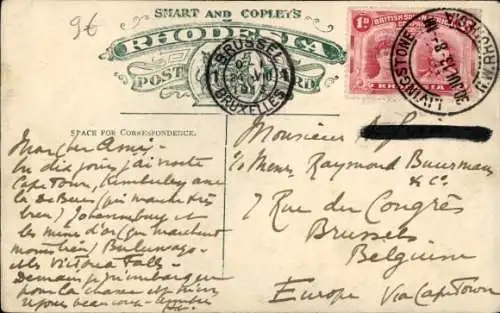 9€
SMART AND COPLEYS
RHODESIA
POST CARD
BRUSSEL
1 1
BRUXELLES
1D
BRITISH SOUTH AFRICA
RHODESIA
LIVINGSTONE
N.W. RHODESIA
SPACE FOR CORRESPONDENCE.
Mon cher Ami,
En dix jours j'ai visité
Cape Town, Kimberley avec
la De Beers (qui marche très
bien) Johannesburg et
les mines d'or (qui marchent
) Buluwayo
les Victoria Falls -
Demain je
pour la chasse et
beaucoup
Monsieur
c/o Messrs Raymond Buurmans
& Co.
7 Rue du Congrès
Brussels
Belgium
Europe Via Cape Town